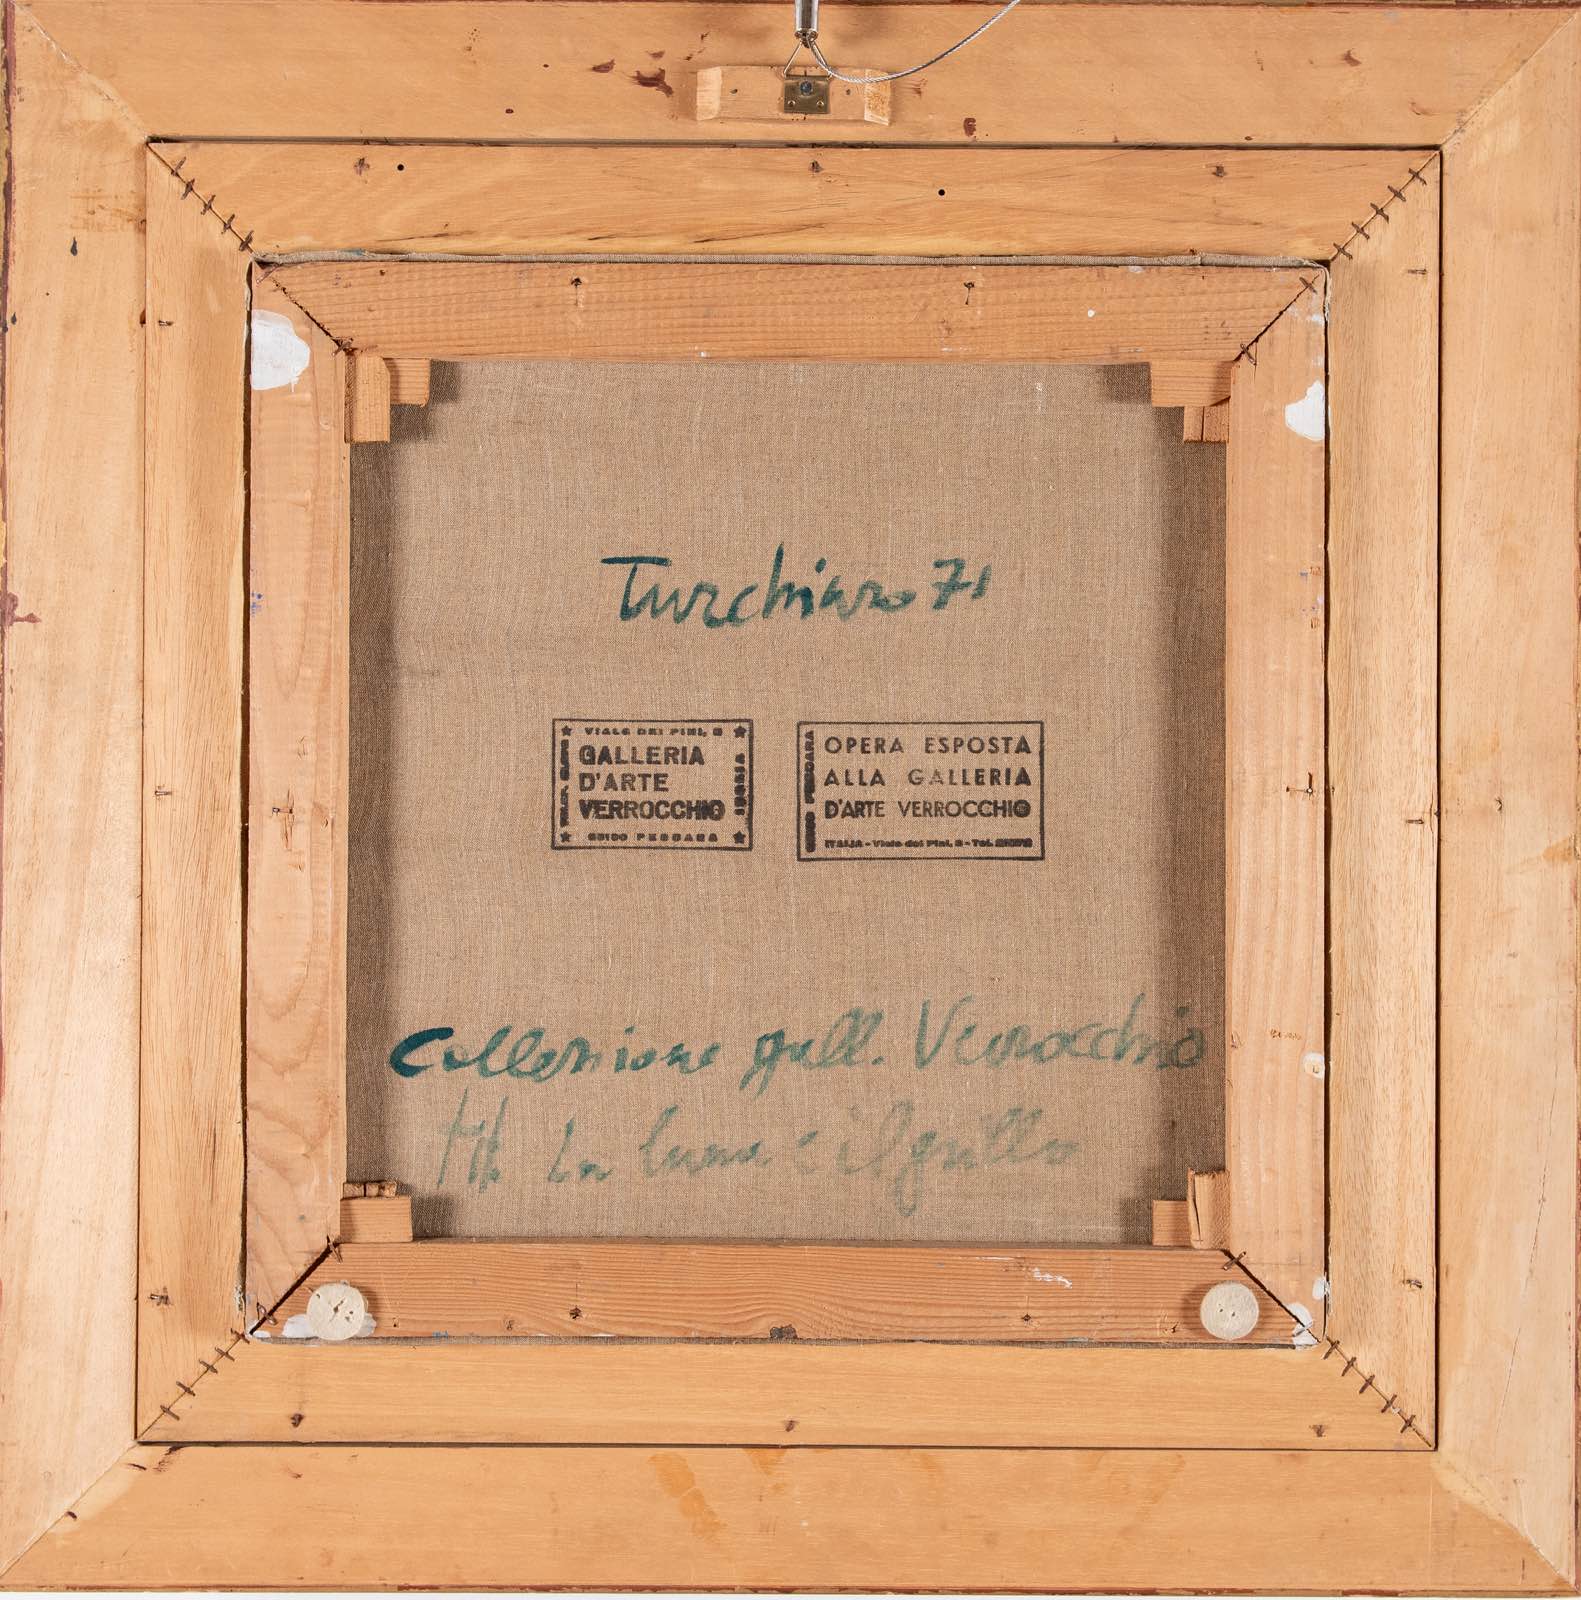 Turchiaro 71
VIALE DEI PINI, 2
GALLERIA
D'ARTE
VERROCCHIO
GUIDO PESCARA
ITALIA
OPERA ESPOSTA
ALLA GALLERIA
D'ARTE VERROCCHIO
ITALIA - Viale dei Pini, 2 - Tel.
GUIDO PESCARA
Collezione gall. Verrocchio
La luna e il grillo